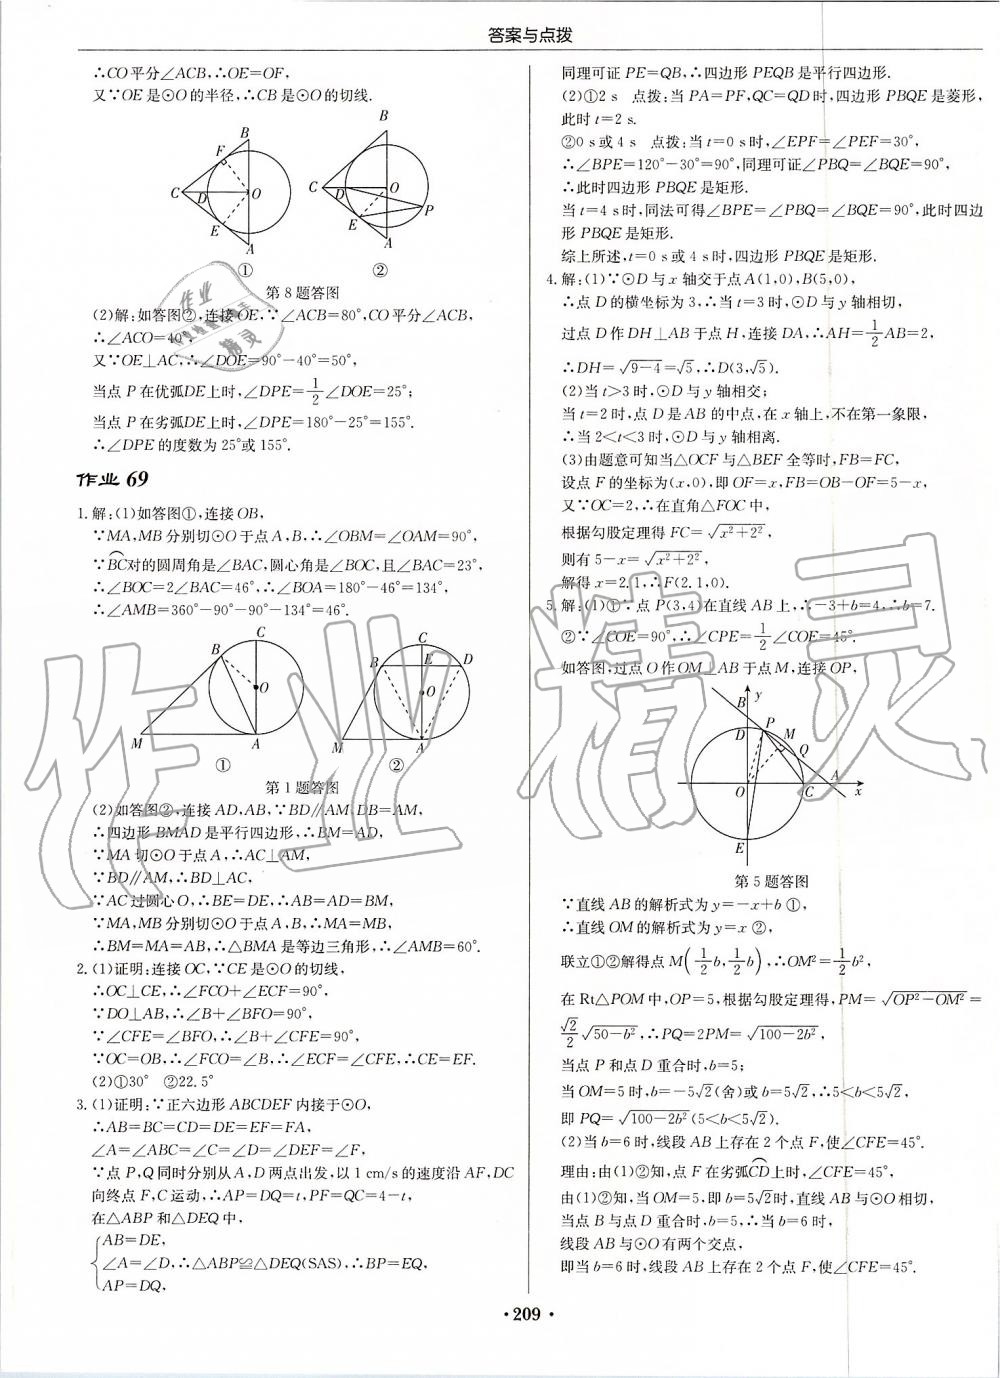 答案与点拨
∴CO平分∠ACB,∴OE=OF,
又∵OE是⊙O的半径,∴CB是⊙O的切线.
B
F
C
D
O
E
A
①
B
C
D
O
P
E
A
②
第8题答图
(2)解:如答图②,连接OE,∵∠ACB=80°,CO平分∠ACB,
∴∠ACO=40°.
又∵OE⊥AC,∴∠DOE=90°-40°=50°,
当点P在优弧DE上时,∠DPE=1/2∠DOE=25°;
当点P在劣弧DE上时,∠DPE=180°-25°=155°.
∴∠DPE的度数为25°或155°.
作业69
1.解:(1)如答图①,连接OB,
∵MA,MB分别切⊙O于点A,B,∴∠OBM=∠OAM=90°,
∵BC⌒对的圆周角是∠BAC,圆心角是∠BOC,且∠BAC=23°,
∴∠BOC=2∠BAC=46°,∴∠BOA=180°-46°=134°,
∴∠AMB=360°-90°-90°-134°=46°.
C
B
O
M
A
①
C
B
E
D
O
M
A
②
第1题答图
(2)如答图②,连接AD,AB,∵BD∥AM,DB=AM,
∴四边形BMAD是平行四边形,∴BM=AD,
∵MA切⊙O于点A,∴AC⊥AM,
∵BD∥AM,∴BD⊥AC,
∵AC过圆心O,∴BE=DE,∴AB=AD=BM,
∵MA,MB分别切⊙O于点A,B,∴MA=MB,
∴BM=MA=AB,∴△BMA是等边三角形,∴∠AMB=60°.
2.(1)证明:连接OC,∵CE是⊙O的切线,
∴OC⊥CE,∴∠FCO+∠ECF=90°,
∵DO⊥AB,∴∠B+∠BFO=90°,
∵∠CFE=∠BFO,∴∠B+∠CFE=90°,
∵OC=OB,∴∠FCO=∠B,∴∠ECF=∠CFE,∴CE=EF.
(2)①30° ②22.5°
3.(1)证明:∵正六边形ABCDEF内接于⊙O,
∴AB=BC=CD=DE=EF=FA,
∠A=∠ABC=∠C=∠D=∠DEF=∠F,
∵点P,Q同时分别从A,D两点出发,以1 cm/s的速度沿AF,DC
向终点F,C运动,∴AP=DQ=t,PF=QC=4-t,
在△ABP和△DEQ中,
AB=DE,
∠A=∠D,∴△ABP≌△DEQ(SAS),∴BP=EQ,
AP=DQ,
同理可证PE=QB,∴四边形PEQB是平行四边形.
(2)①2 s 点拨:当PA=PF,QC=QD时,四边形PBQE是菱形,
此时t=2 s.
②0 s或4 s 点拨:当t=0 s时,∠EPF=∠PEF=30°,
∴∠BPE=120°-30°=90°,同理可证∠PBQ=∠BQE=90°,
∴此时四边形PBQE是矩形.
当t=4 s时,同法可得∠BPE=∠PBQ=∠BQE=90°,此时四边
形PBQE是矩形.
综上所述,t=0 s或4 s时,四边形PBQE是矩形.
4.解:(1)∵⊙D与x轴交于点A(1,0),B(5,0),
∴点D的横坐标为3,∴当t=3时,⊙D与y轴相切,
过点D作DH⊥AB于点H,连接DA,∴AH=1/2AB=2,
∴DH=√(9-4)=√5,∴D(3,√5).
(2)当t>3时,⊙D与y轴相交;
当t=2时,点D是AB的中点,在x轴上,不在第一象限,
∴当2<t<3时,⊙D与y轴相离.
(3)由题意可知当△OCF与△BEF全等时,FB=FC,
设点F的坐标为(x,0),即OF=x,FB=OB-OF=5-x,
又∵OC=2,∴在直角△FOC中,
根据勾股定理得FC=√(x²+2²),
则有5-x=√(x²+2²),
解得x=2.1,∴F(2.1,0).
5.解:(1)①∵点P(3,4)在直线AB上,∴-3+b=4,∴b=7.
②∵∠COE=90°,∴∠CPE=1/2∠COE=45°.
如答图,过点O作OM⊥AB于点M,连接OP,
y
B
P
D
M
Q
A
O
C
x
E
第5题答图
∵直线AB的解析式为y=-x+b ①,
∴直线OM的解析式为y=x ②,
联立①②解得点M(1/2b,1/2b),∴OM²=1/2b²,
在Rt△POM中,OP=5,根据勾股定理得,PM=√(OP²-OM²)=
√2/2√(50-b²),∴PQ=2PM=√(100-2b²),
当点P和点D重合时,b=5;
当OM=5时,b=-5√2(舍)或b=5√2,∴5<b<5√2,
即PQ=√(100-2b²)(5<b<5√2).
(2)当b=6时,线段AB上存在2个点F,使∠CFE=45°.
理由:由(1)②知,点F在劣弧CD⌒上时,∠CFE=45°,
由(1)②知,当OM=5,即b=5√2时,直线AB与⊙O相切,
当点B与点D重合时,b=5,∴当b=6时,
线段AB与⊙O有两个交点,
即当b=6时,线段AB上存在2个点F,使∠CFE=45°.
·209·
作业精灵